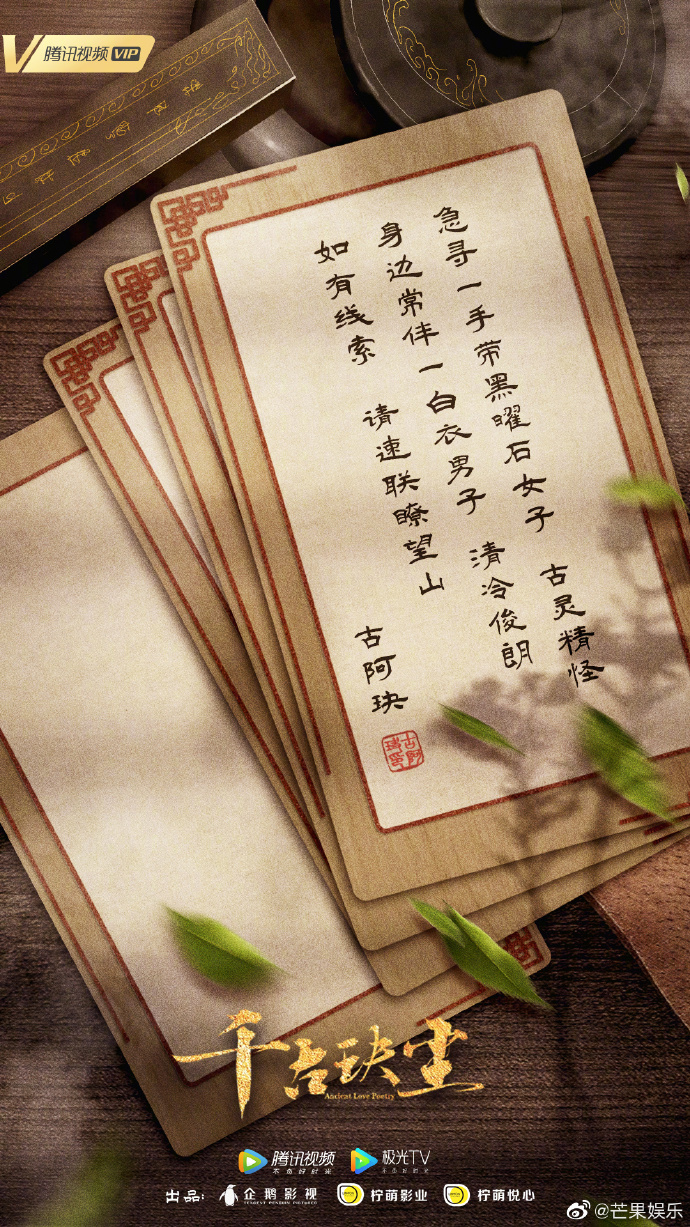 腾讯视频 VIP
急寻一手带黑曜石女子 古灵精怪
身边常伴一白衣男子 清冷俊朗
如有线索 请速联瞭望山
古阿玦
千古玦尘
Ancient Love Poetry
腾讯视频
不负好时光
极光TV
不负好时光
出品:
企鹅影视
TENCENT PENGUIN PICTURES
柠萌影业
柠萌悦心
@芒果娱乐